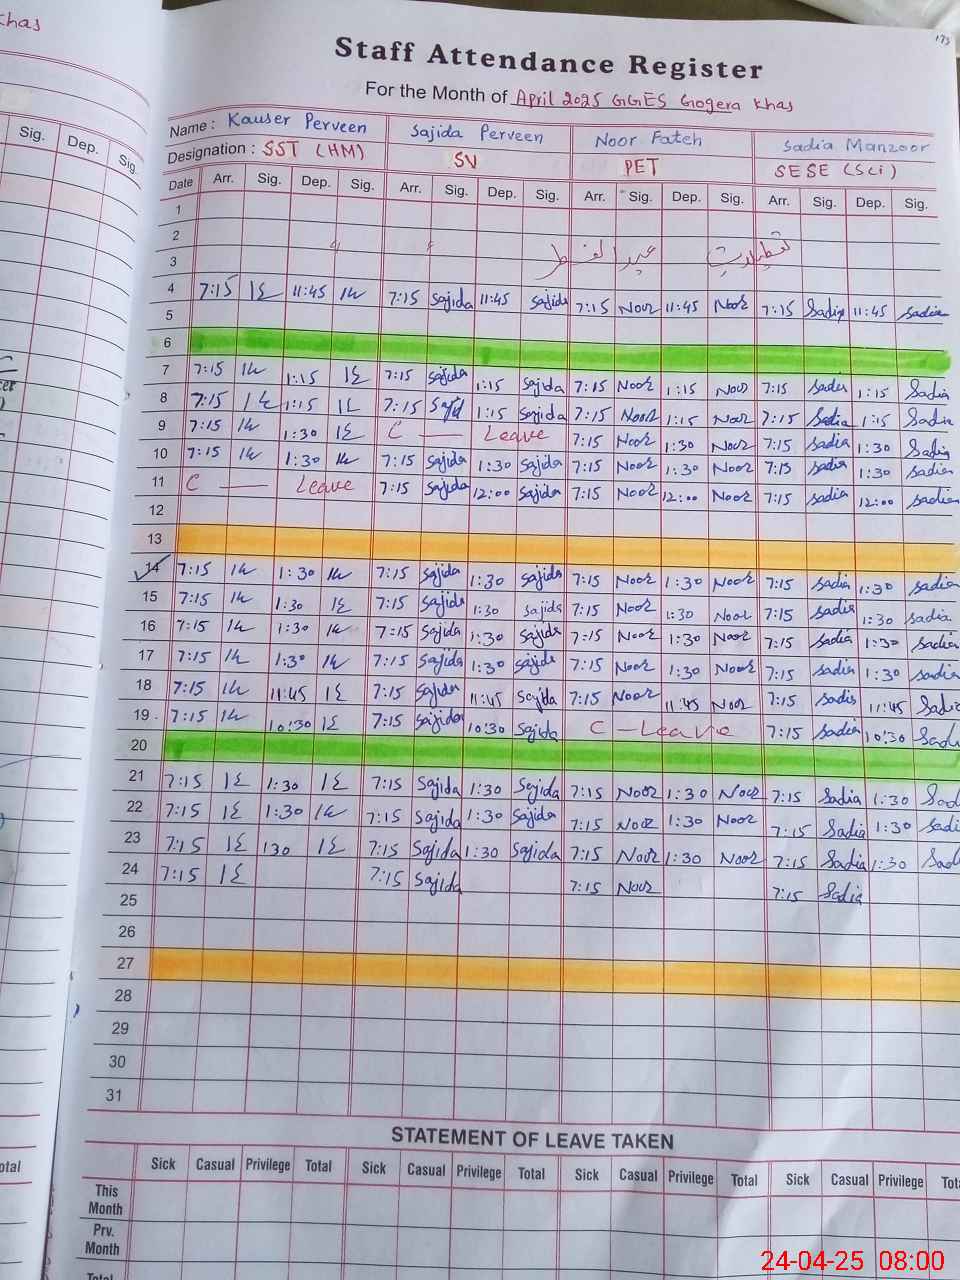 khas
173
Staff Attendance Register
For the Month of April 2025 GGES Gogera Khas
Name : Kauser Perveen Sajida Perveen Noor Fateh Sadia Manzoor
Designation : SST (HM) SV PET SESE (Sci)
Sig. Dep. Sig.
Date Arr. Sig. Dep. Sig. Arr. Sig. Dep. Sig. Arr. Sig. Dep. Sig. Arr. Sig. Dep. Sig.
1
2 عید الفطر
3
4 7:15 11:45 7:15 Sajida 11:45 Sajida 7:15 Noor 11:45 Noor 7:15 Sadia 11:45 Sadia
5
6
7 7:15 1:15 7:15 Sajida 1:15 Sajida 7:15 Noor 1:15 Noor 7:15 Sadia 1:15 Sadia
8 7:15 1:15 7:15 1:15 Sajida 7:15 Noor 1:15 Noor 7:15 Sadia 1:15 Sadia
9 7:15 1:30 C — Leave 7:15 Noor 1:30 Noor 7:15 Sadia 1:30 Sadia
10 7:15 1:30 7:15 Sajida 1:30 Sajida 7:15 Noor 1:30 Noor 7:15 Sadia 1:30 Sadia
11 C — Leave 7:15 Sajida 12:00 Sajida 7:15 Noor 12:00 Noor 7:15 Sadia 12:00 Sadia
12
13
14 7:15 1:30 7:15 Sajida 1:30 Sajida 7:15 Noor 1:30 Noor 7:15 Sadia 1:30 Sadia
15 7:15 1:30 7:15 Sajida 1:30 Sajida 7:15 Noor 1:30 Noor 7:15 Sadia 1:30 Sadia
16 7:15 1:30 7:15 Sajida 1:30 Sajida 7:15 Noor 1:30 Noor 7:15 Sadia 1:30 Sadia
17 7:15 1:30 7:15 Sajida 1:30 Sajida 7:15 Noor 1:30 Noor 7:15 Sadia 1:30 Sadia
18 7:15 11:45 7:15 Sajida 11:45 Sajida 7:15 Noor 11:45 Noor 7:15 Sadia 11:45 Sadia
19 7:15 10:30 7:15 Sajida 10:30 Sajida C – Leave 7:15 Sadia 10:30 Sadi
20
21 7:15 1:30 7:15 Sajida 1:30 Sajida 7:15 Noor 1:30 Noor 7:15 Sadia 1:30 Sad
22 7:15 1:30 7:15 Sajida 1:30 Sajida 7:15 Noor 1:30 Noor 7:15 Sadia 1:30 Sadi
23 7:15 130 7:15 Sajida 1:30 Sajida 7:15 Noor 1:30 Noor 7:15 Sadia 1:30 Sad
24 7:15 7:15 Sajida 7:15 Noor 7:15 Sadia
25
26
27
28
29
30
31
STATEMENT OF LEAVE TAKEN
Sick Casual Privilege Total Sick Casual Privilege Total Sick Casual Privilege Total Sick Casual Privilege Tot
This Month
Prv. Month
Total
24-04-25 08:00